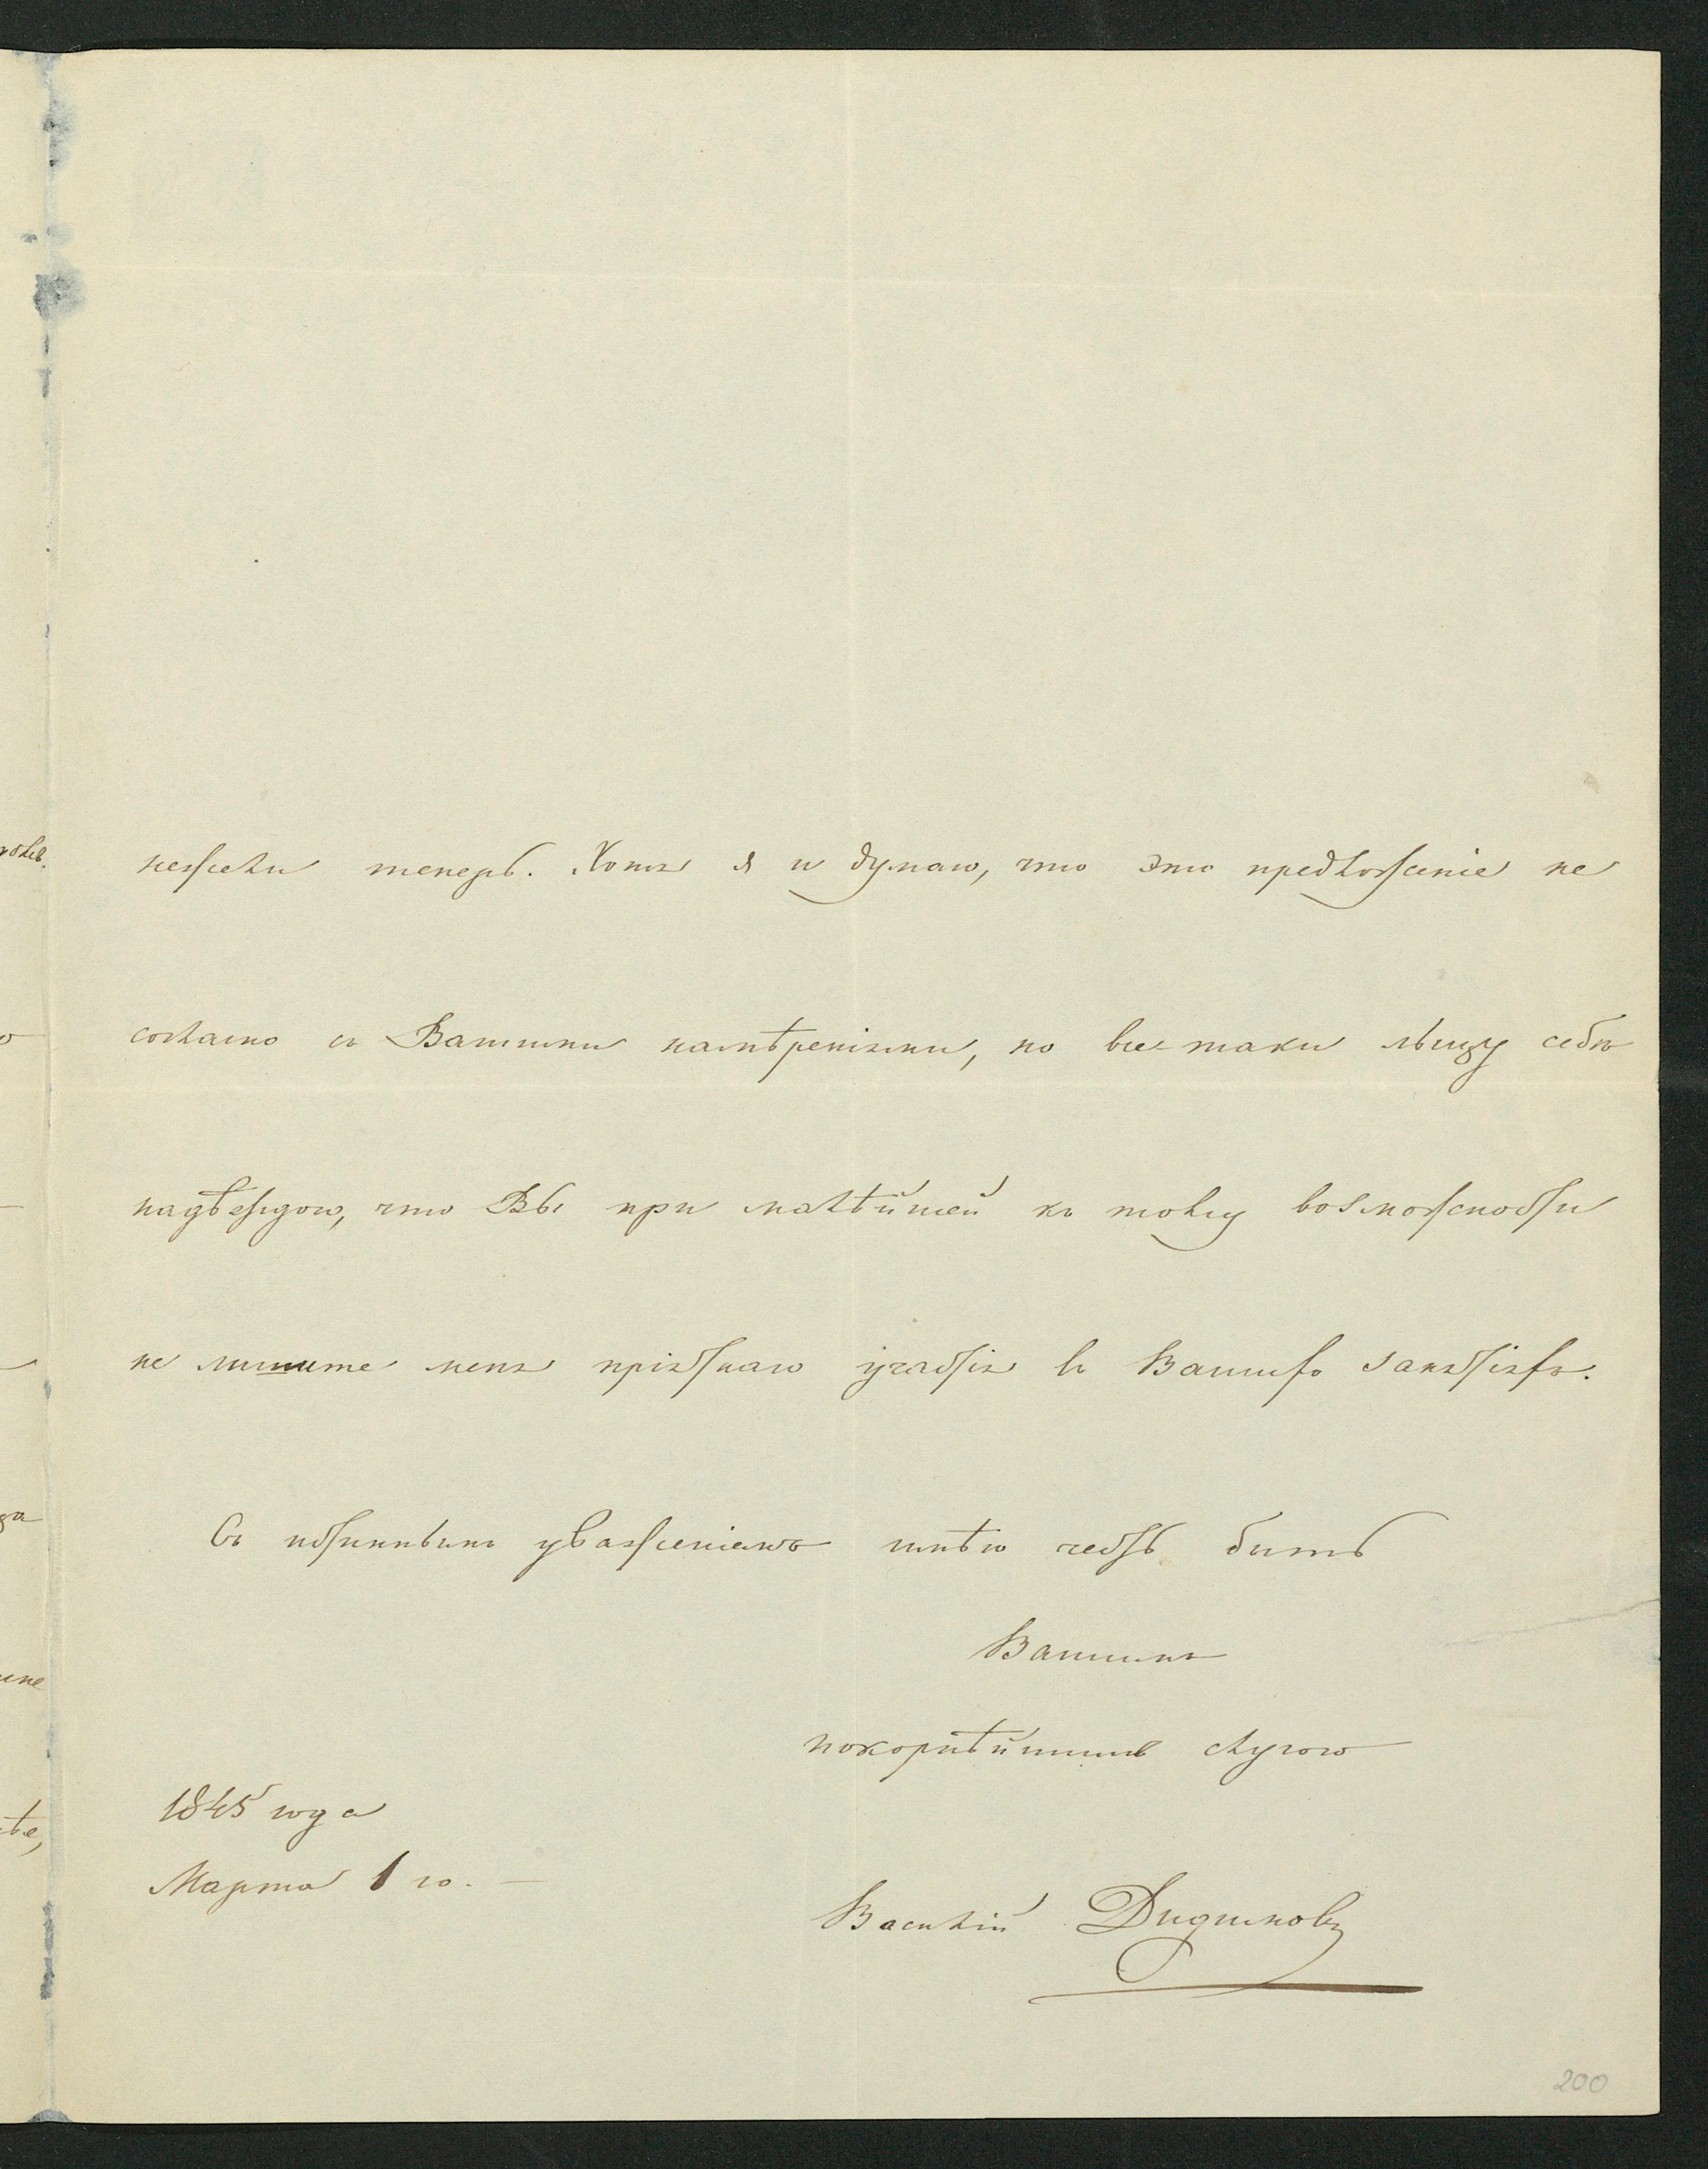 нежели теперь. Хотя я и думаю, что это предложеніе не
согласно съ Вашими намѣреніями, но все-таки льщу себя
надѣеждою, что Вы при малѣйшей къ тому возможности
не лишите меня пріятнаго участія въ Вашихъ занятіяхъ.
Съ истиннымъ уваженіемъ имѣю честь быть
Вашимъ
покорнѣйшимъ слугою
1845 года
Марта 1 го. —
Василій Дидинковъ
200